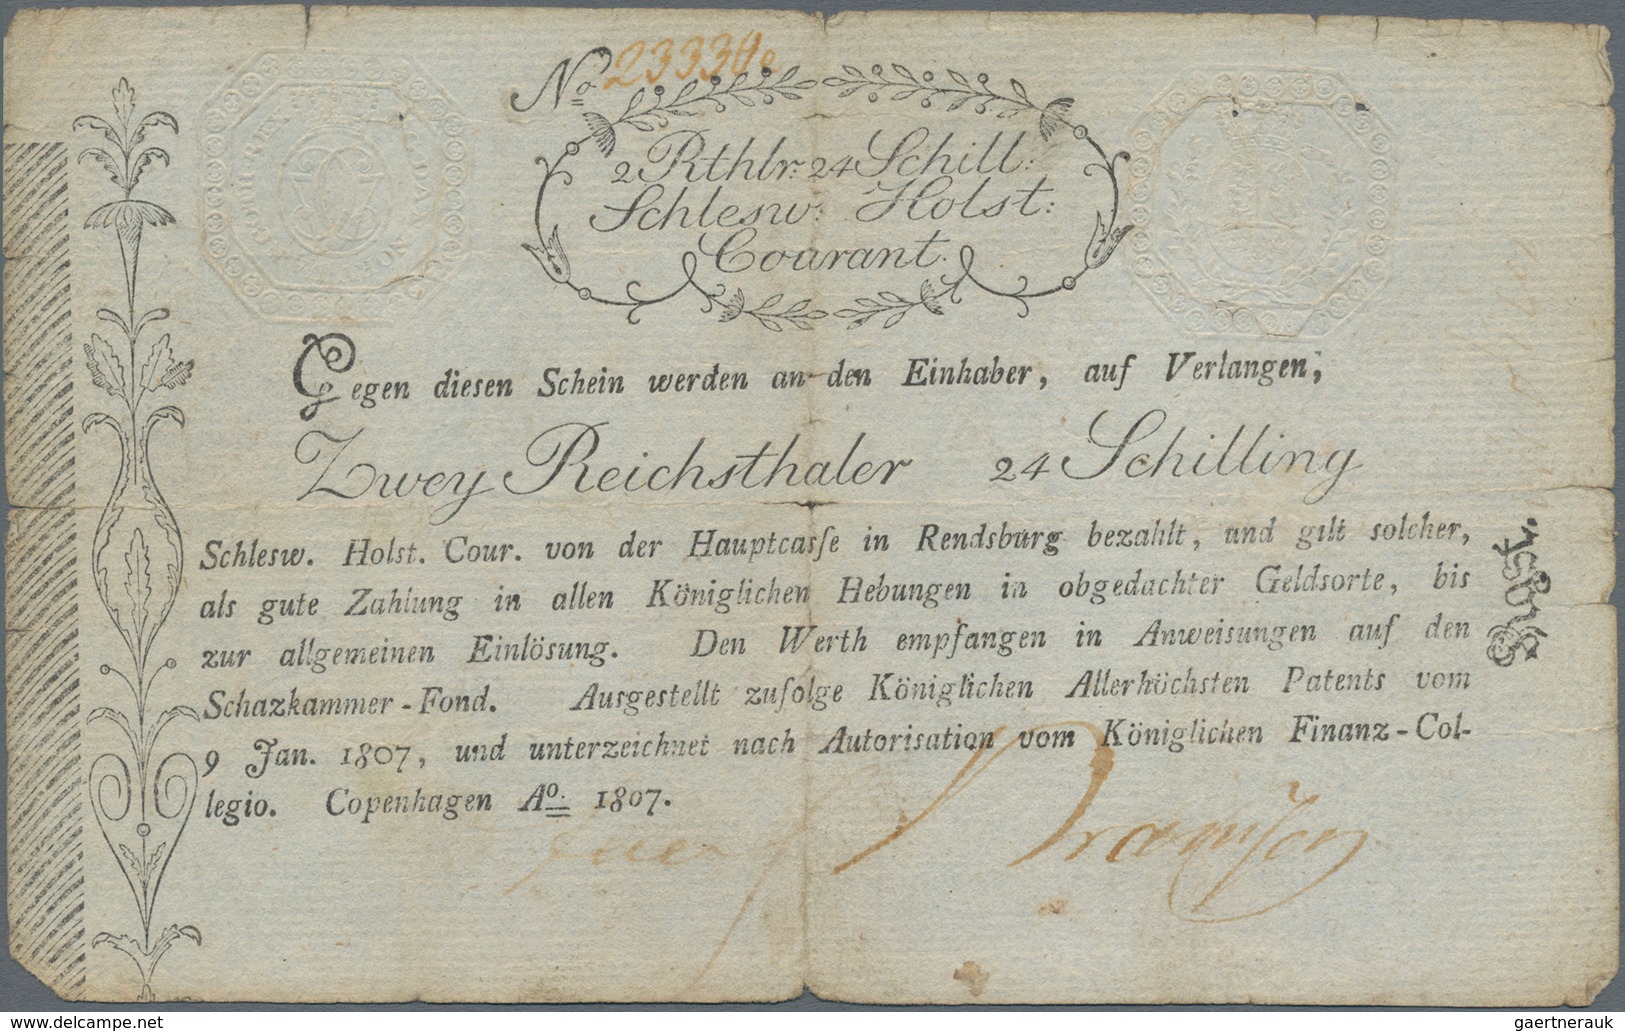 No.
2 Rthlr: 24 Schill:
Schlesw: Holst:
Courant.
Gegen diesen Schein werden an den Einhaber, auf Verlangen,
Zwey Reichsthaler 24 Schilling
Schlesw. Holst. Cour. von der Hauptcasse in Rendsburg bezahlt, und gilt solcher,
als gute Zahlung in allen Königlichen Hebungen in obgedachter Geldsorte, bis
zur allgemeinen Einlösung. Den Werth empfangen in Anweisungen auf den
Schazkammer-Fond. Ausgestellt zufolge Königlichen Allerhöchsten Patents vom
9 Jan. 1807, und unterzeichnet nach Autorisation vom Königlichen Finanz-Col-
legio. Copenhagen Ao. 1807.
www.delcampe.net
gaertnerauk